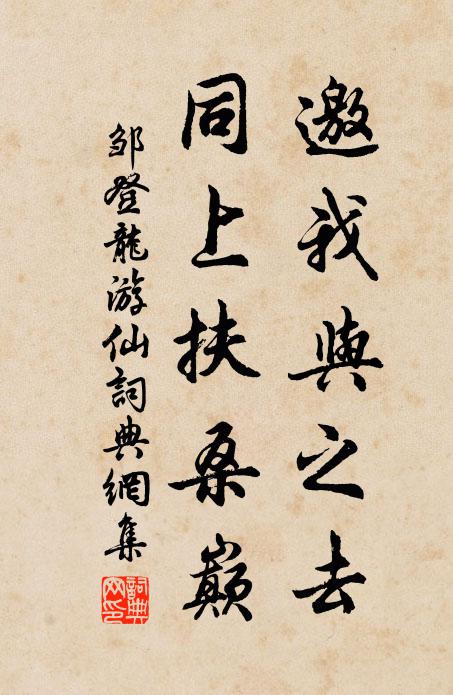 邀我與之去
同上扶桑巔
邹登龍游仙詞典網集
詞典網印